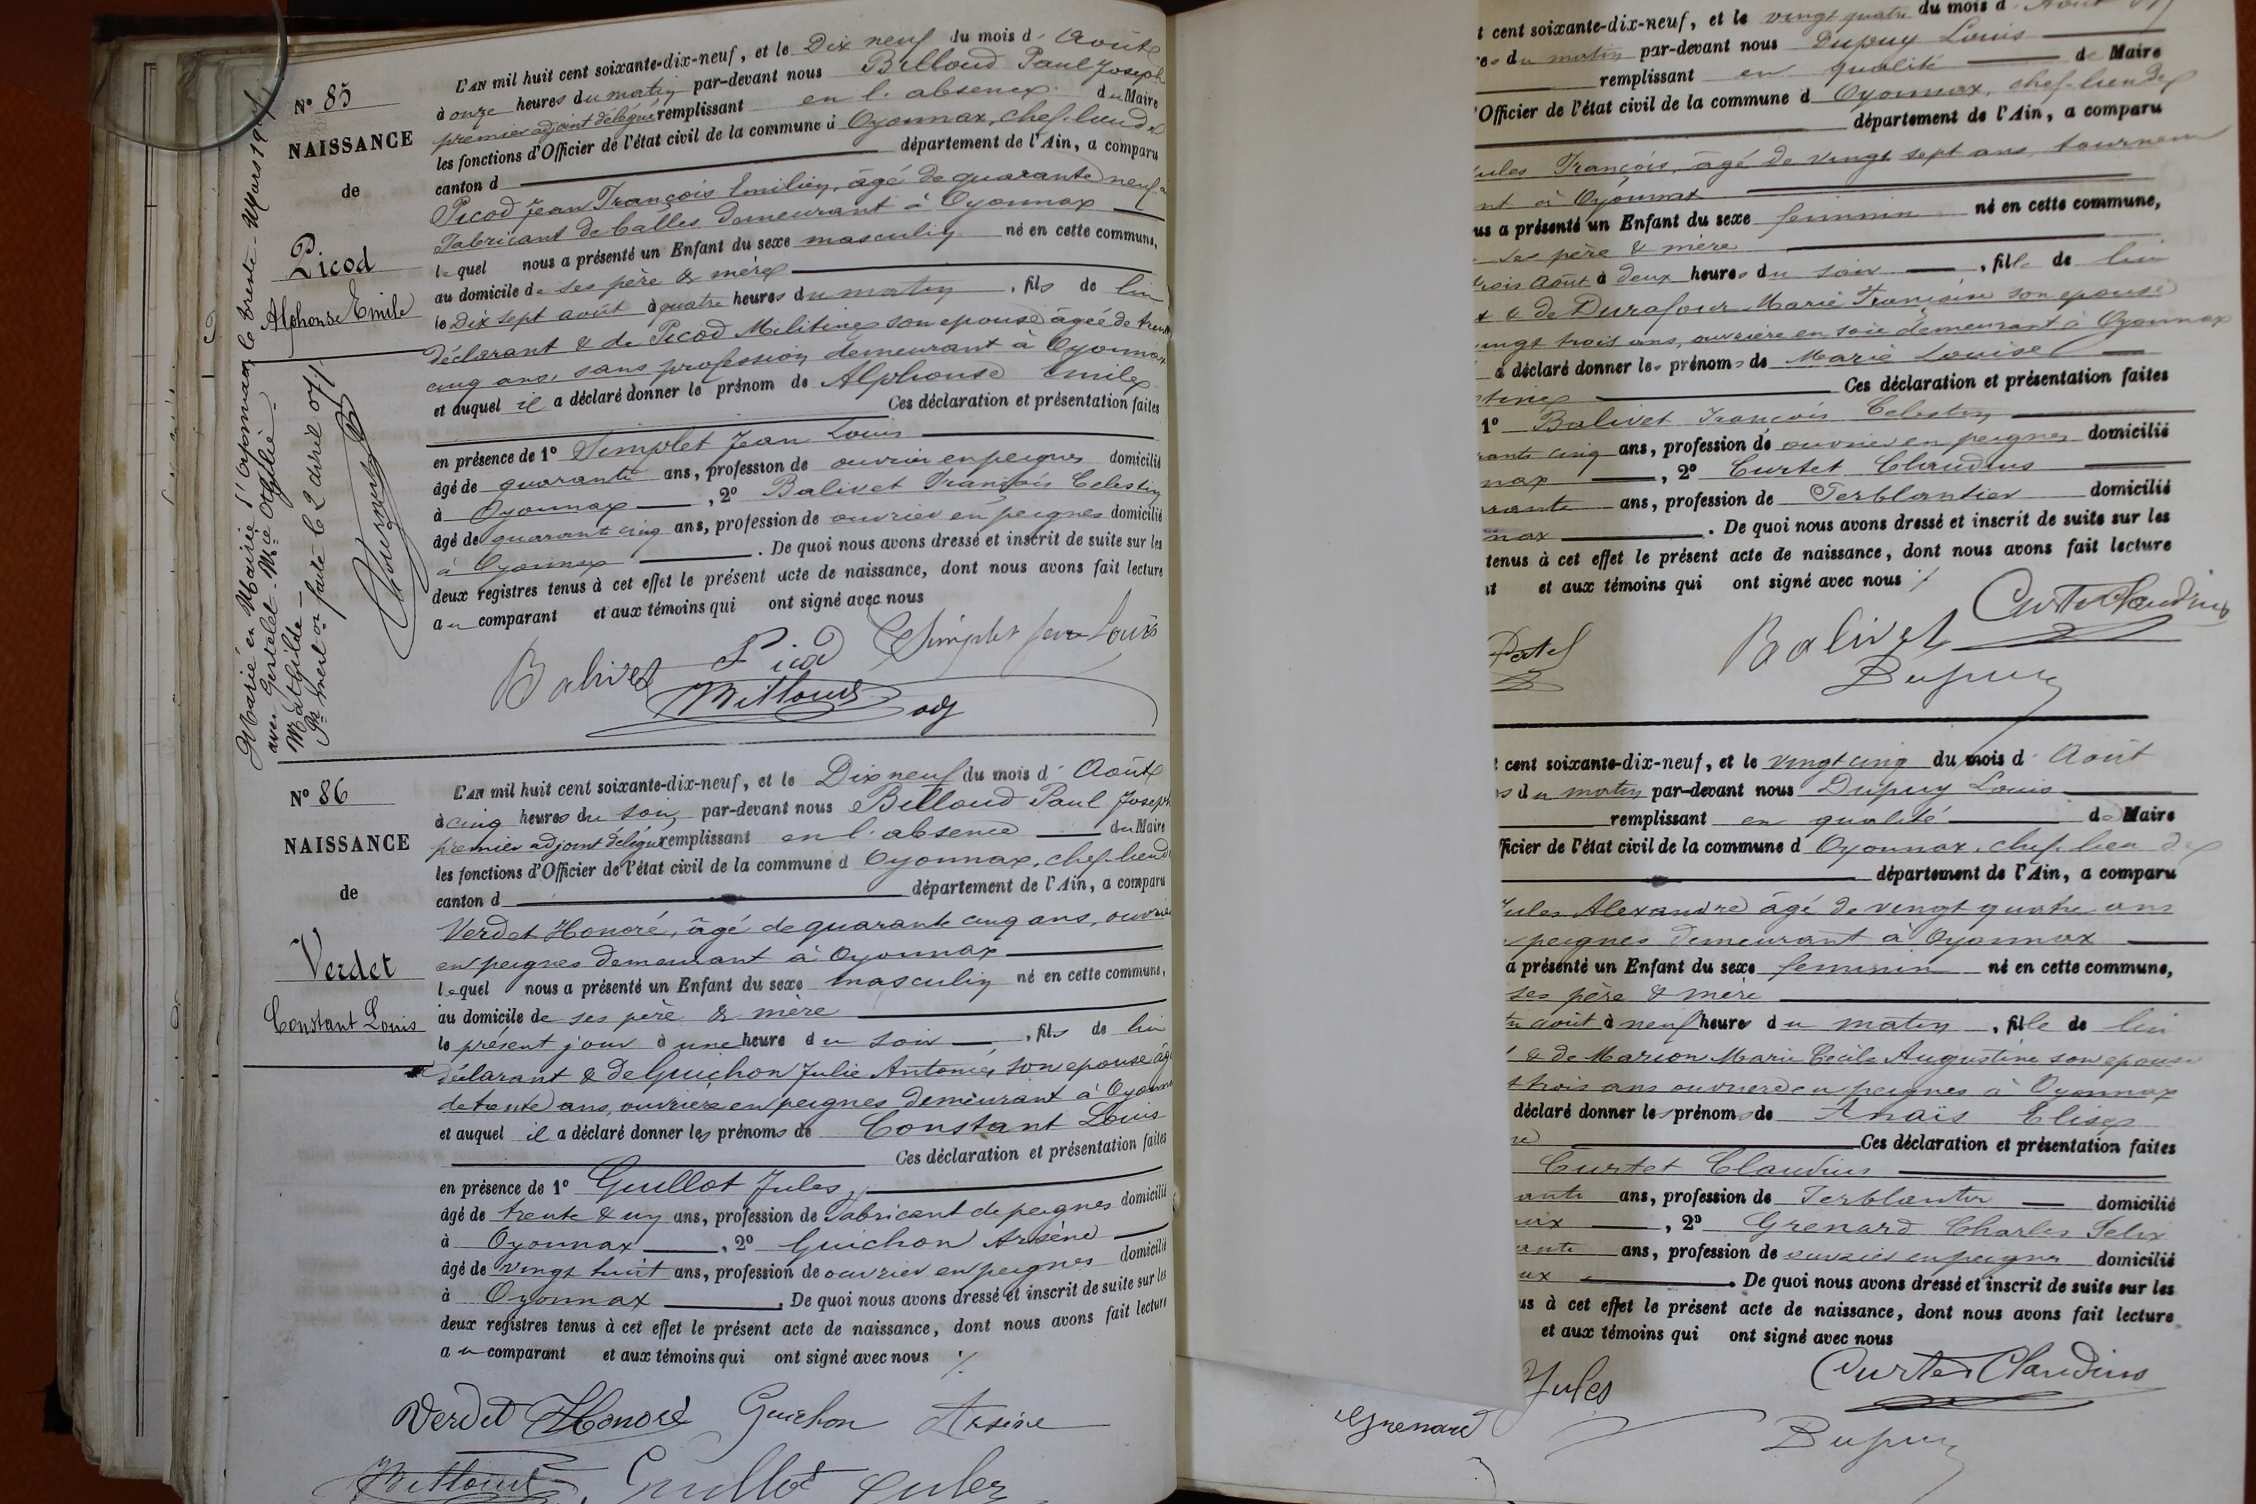 Nº 85
NAISSANCE
de
Picod
Alphonse Emile
Marié en Mairie d'Oyonnax le trente Mars 19
avec Gentelet Mie Aglaé
Mathilde
faite le 2 avril 07
L'AN mil huit cent soixante-dix-neuf, et le Dix neuf du mois d' Août
à onze heures du matin par-devant nous Billoud Paul Joseph
premier adjoint délégué remplissant en l'absence du Maire
les fonctions d'Officier de l'état civil de la commune d Oyonnax, chef-lieu de
canton d département de l'Ain, a comparu
Picod Jean François Emilien, âgé de quarante neuf
Fabricant de balles demeurant à Oyonnax
lequel nous a présenté un Enfant du sexe masculin né en cette commune,
au domicile de ses père & mère
le Dix sept août à quatre heures du matin, fils de lui
déclarant & de Picod Militine son epouse âgée de trente
cinq ans, sans profession, demeurant à Oyonnax
et auquel il a déclaré donner le prénom de Alphonse Emile
Ces déclaration et présentation faites
en présence de 1º Simplet Jean Louis
âgé de quarante ans, profession de ouvrier en peignes domicilié
à Oyonnax, 2º Balivet François Celestin
âgé de quarante cinq ans, profession de ouvrier en peignes domicilié
à Oyonnax. De quoi nous avons dressé et inscrit de suite sur les
deux registres tenus à cet effet le présent acte de naissance, dont nous avons fait lecture
au comparant et aux témoins qui ont signé avec nous
Balivet Picod Simplet Jean Louis
Billoud adj
Nº 86
NAISSANCE
de
Verdet
Constant Louis
L'AN mil huit cent soixante-dix-neuf, et le Dix neuf du mois d' Août
à cinq heures du soir, par-devant nous Billoud Paul Joseph
premier adjoint délégué remplissant en l'absence du Maire
les fonctions d'Officier de l'état civil de la commune d Oyonnax, chef-lieu de
canton d département de l'Ain, a comparu
Verdet Honoré, âgé de quarante cinq ans, ouvrier
en peignes demeurant à Oyonnax
lequel nous a présenté un Enfant du sexe masculin né en cette commune,
au domicile de ses père & mère
le présent jour à une heure du soir, fils de lui
déclarant & de Guichon Julie Antonie, son epouse âgé
de trente ans, ouvriere en peignes demeurant à Oyonnax
et auquel il a déclaré donner les prénoms de Constant Louis
Ces déclaration et présentation faites
en présence de 1º Guillot Jules
âgé de trente & un ans, profession de fabricant de peignes domicilié
à Oyonnax, 2º Guichon Arsène
âgé de vingt huit ans, profession de ouvrier en peignes domicilié
à Oyonnax. De quoi nous avons dressé et inscrit de suite sur les
deux registres tenus à cet effet le présent acte de naissance, dont nous avons fait lecture
au comparant et aux témoins qui ont signé avec nous ./.
Verdet Honoré Guichon Arsène
Billoud Guillot Jules
t cent soixante-dix-neuf, et le vingt quatre du mois d' Août
es du matin par-devant nous Dupuy Louis
remplissant en qualité de Maire
'Officier de l'état civil de la commune d Oyonnax, chef-lieu de
département de l'Ain, a comparu
Jules François, âgé de vingt sept ans, tourneur
nt à Oyonnax
us a présenté un Enfant du sexe feminin né en cette commune,
ses père & mère
trois Août à deux heures du soir, fille de lui
t & de Durafour Marie Françoise son epouse
vingt trois ans, ouvrière en soie demeurant à Oyonnax
a déclaré donner les prénoms de Marie Louise
tine Ces déclaration et présentation faites
1º Balivet François Celestin
rante cinq ans, profession de ouvrier en peignes domicilié
nax, 2º Curtet Claudius
rante ans, profession de Ferblantier domicilié
nax. De quoi nous avons dressé et inscrit de suite sur les
tenus à cet effet le présent acte de naissance, dont nous avons fait lecture
nt et aux témoins qui ont signé avec nous ./.
Balivet Curtet Claudius
Dupuy
t cent soixante-dix-neuf, et le vingt cinq du mois d' Août
s du matin par-devant nous Dupuy Louis
remplissant en qualité de Maire
fficier de l'état civil de la commune d Oyonnax, chef-lieu de
département de l'Ain, a comparu
Jules Alexandre âgé de vingt quatre ans
peignes demeurant à Oyonnax
a présenté un Enfant du sexe feminin né en cette commune,
ses père & mère
août à neuf heures du matin, fille de lui
t & de Marion Marie Cécile Augustine son epouse
t trois ans ouvriere en peignes à Oyonnax
déclaré donner les prénoms de Anaïs Elise
Ces déclaration et présentation faites
Curtet Claudius
ante ans, profession de Ferblantier domicilié
ax, 2º Grenard Charles Felix
ante ans, profession de ouvrier en peignes domicilié
ax. De quoi nous avons dressé et inscrit de suite sur les
us à cet effet le présent acte de naissance, dont nous avons fait lecture
et aux témoins qui ont signé avec nous
Jules Curtet Claudius
Grenard Dupuy